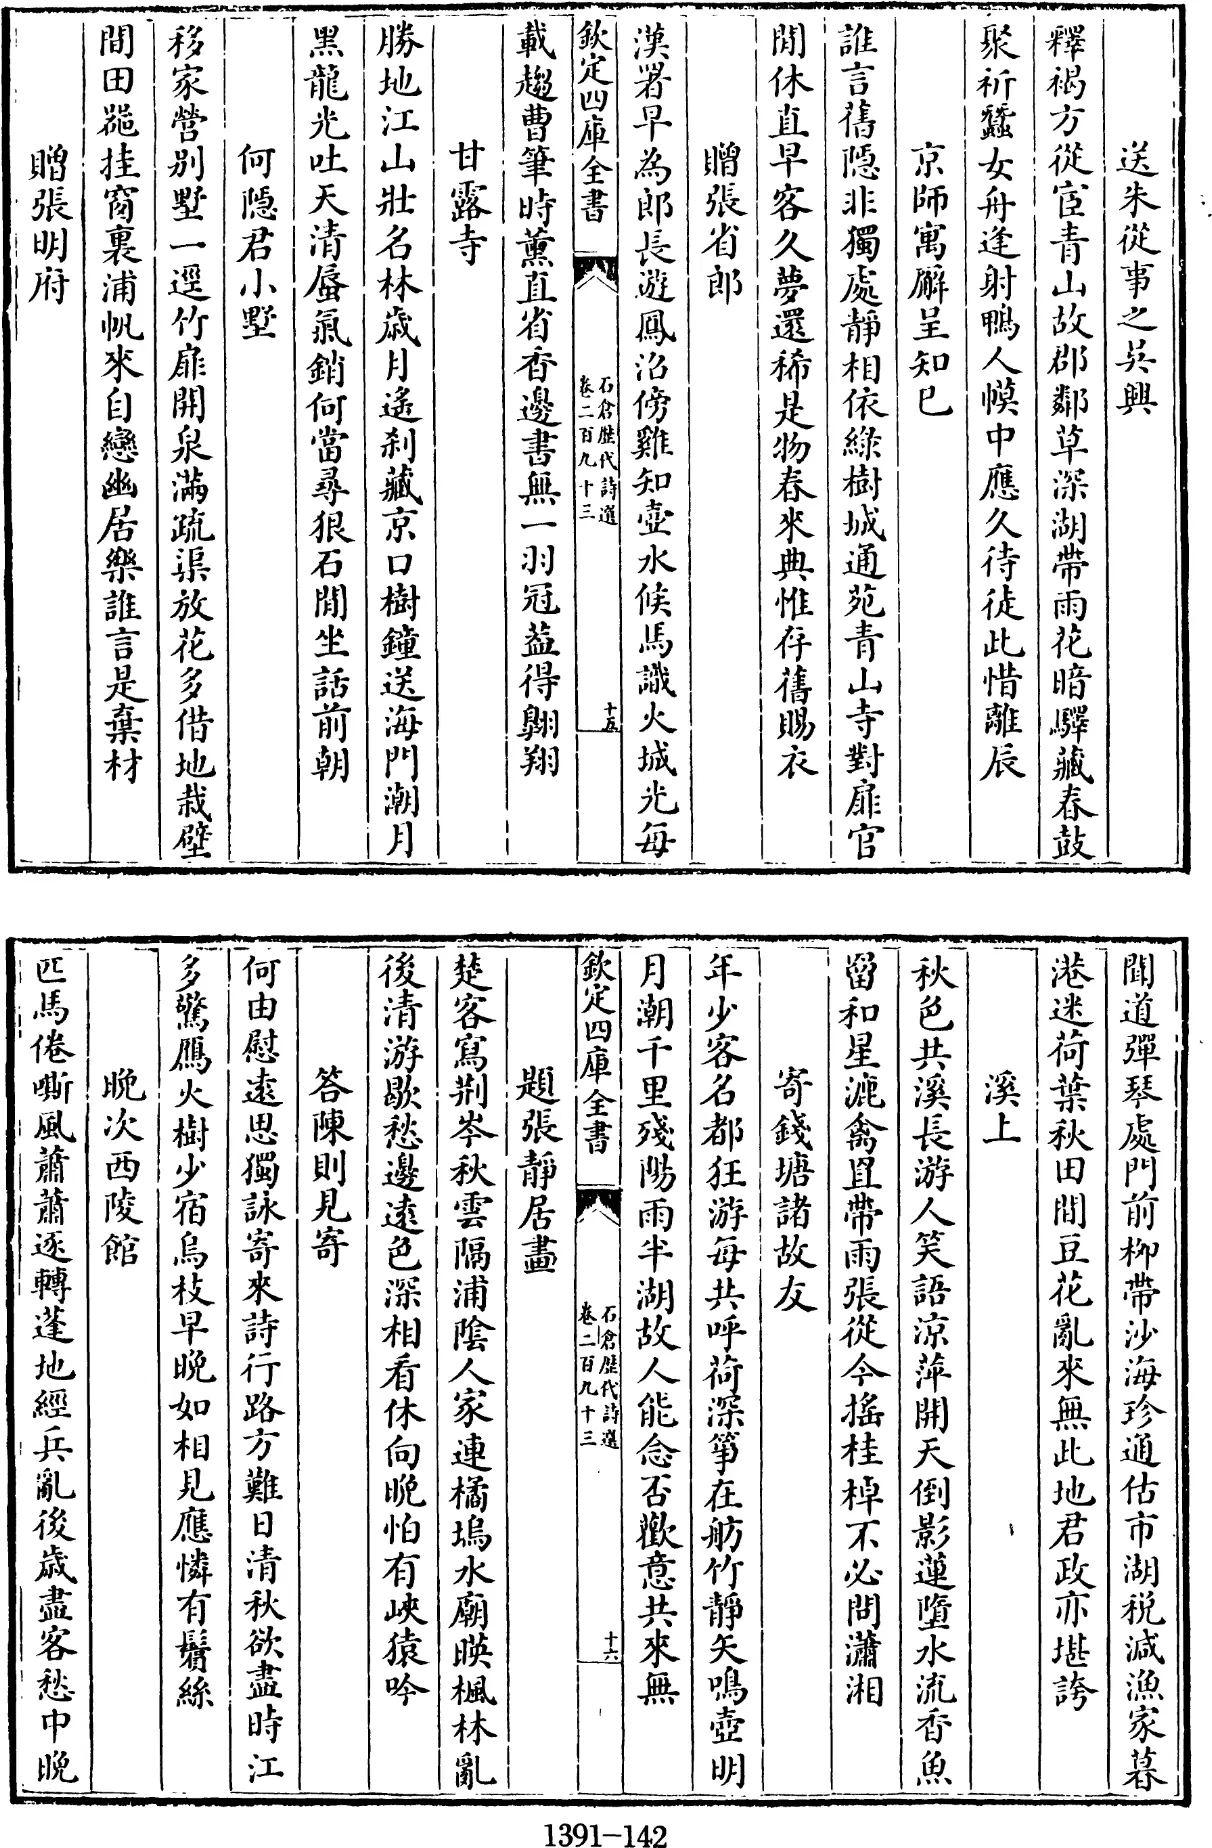 送朱從事之吳興
釋褐方從宦青山故郡鄰草深湖帶雨花暗驛藏春鼓
聚祈蠶女舟逢射鴨人幙中應久待徒此惜離辰
京師寓廨呈知已
誰言舊隱非獨處靜相依綠樹城通苑青山寺對扉官
閒休直早客久夢還稀是物春來典惟存舊賜衣
贈張省郎
漢署早為郎長遊鳳沼傍雞知壺水候馬識火城光每
欽定四庫全書
石倉歷代詩選
卷二百九十三
十五
載趨曹筆時薰直省香邊書無一羽冠葢得翺翔
甘露寺
勝地江山壯名林歲月遙刹藏京口樹鐘送海門潮月
黑龍光吐天清蜃氣銷何當尋狠石閒坐話前朝
何隱君小墅
移家營别墅一逕竹扉開泉滿疏渠放花多借地栽壁
間田器挂窗裏浦帆來自戀幽居樂誰言是棄材
贈張明府
聞道彈琴處門前柳帶沙海珍通估市湖税減漁家暮
港迷荷葉秋田間豆花亂來無此地君政亦堪誇
溪上
秋色共溪長游人笑語涼萍開天倒影蓮墮水流香魚
罶和星漉禽罝帶雨張從今搖桂棹不必問瀟湘
寄錢塘諸故友
年少客名都狂游每共呼荷深箏在舫竹靜矢鳴壺明
月潮千里殘陽雨半湖故人能念否歡意共來無
欽定四庫全書
石倉歷代詩選
卷二百九十三
十六
題張靜居畫
楚客寫荆岑秋雲隔浦陰人家連橘塢水廟暎楓林亂
後清游歇愁邊遠色深相看休向晚怕有峽猿吟
答陳則見寄
何由慰遠思獨詠寄來詩行路方難日清秋欲盡時江
多驚鴈火樹少宿烏枝早晚如相見應憐有鬢絲
晚次西陵館
匹馬倦嘶風蕭蕭逐轉蓬地經兵亂後歲盡客愁中晚
1391-142